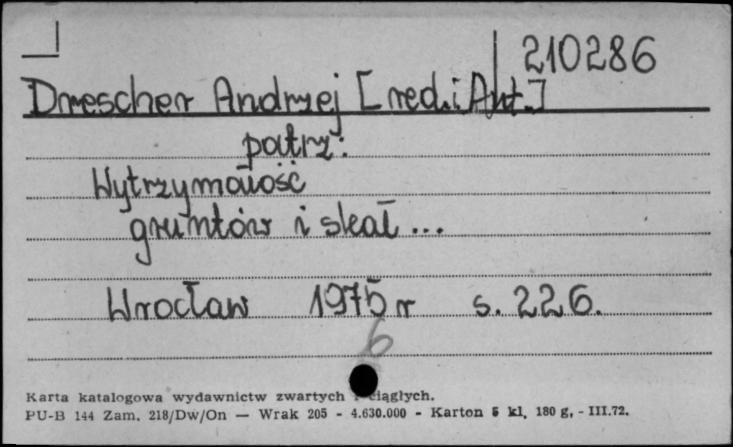 210286
Drescher Andrzej [red. i Aut.]
patrz:
Wytrzymałość
gruntów i skał ...
Wrocław 1975 r s. 226.
6
Karta katalogowa wydawnictw zwartych i ciągłych.
PU-B 144 Zam. 218/Dw/On — Wrak 205 - 4.630.000 - Karton 5 kl. 180 g, - III.72.